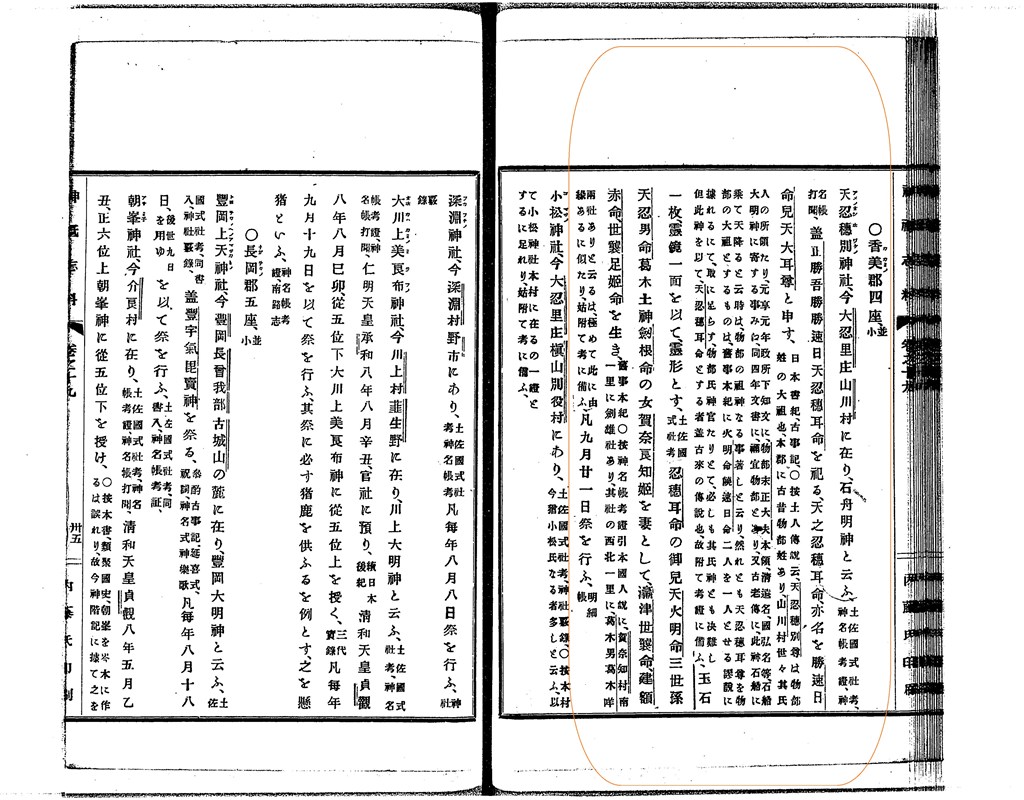 ○香美郡四座、並小
天忍穗別神社、今大忍里庄山川村に在り、石舟明神と云ふ、土佐國式社考、神名帳考證、神
名帳打聞、盖正勝吾勝勝速日天忍穗耳命を祀る、天之忍穗耳命亦名を勝速日
命兒天大耳尊と申す、日本書紀古事記、○按土人傳說云、天忍穗別尊は物部姓の大祖也、本郡に古昔物部姓あり、山川村世々其氏
人の所領たり元享元年政所下知文に、物部末正大夫、本領淸遠名國弘名等、石船
大明神に寄する事みね、同四年文書に、禰宜物部
乘て天降ると云時は、物部の祖神なる事著しと云り、然れとも天忍穗耳尊を物
部の大祖とするものは、舊事本紀に火明命饒速日命二人を一人とせる謬說に
據れるにて、取に足らす、物部氏神官たりとて、必しも其氏神とも決難し
但此神を以て、天忍穗耳命とする者盖古來の傳說也、故附て考證に備ふ、玉石
一枚、靈鏡一面を以て、靈形とす、土佐國式社考忍穗耳命の御兒天火明命三世孫
天忍男命葛木土神劔根命の女賀奈良知姬を妻として、瀛津世襲命、建額
赤命、世襲足姬命を生き、舊事本紀○按神名帳考證引本國人說に、賀奈知村南一里に劔雄社あり、其社の西北一里に、葛木男葛木咩
兩社ありと云るは、極めて此に由緣あるに似たり、姑附て考に備ふ、凡九月廿一日祭を行ふ、明細帳
小松神社、今大忍里庄槇山別役村にあり、土佐國式社考、神社覈錄○按本村今猶小松氏なる者多しと云ふ、以
て小松神社本村に在るの一證とするに足れり、姑附て考に備ふ、
深淵神社、今深淵村野市にあり、土佐國式社考神名帳考凡每年八月八日祭を行ふ、神社
覈錄
大川上美良布神社、今川上村韮生野に在り、川上大明神と云ふ、土佐國式社考、神名
帳考證神名帳打聞、仁明天皇承和八年八月辛丑、官社に預り、續日本後紀淸和天皇貞觀
八年八月已卯從五位下大川上美良布神に從五位上を授く、三代實錄凡每年
九月十九日を以て祭を行ふ、其祭に必す猪鹿を供ふるを例とす、之を懸
猪といふ、神名帳考證、南路志
○長岡郡五座、並小
豐岡上天神社、今豐岡長曾我部古城山の麓に在り、豐岡大明神と云ふ、土佐
國式社考、同書入、神社覈錄、盖豐宇氣毘賣神を祭る、參酌古事記、延喜式、祝詞、神名式神樂歌凡每年八月十八
日、後世九日を用ゆを以て祭を行ふ、土佐國式社考、同書入、神名帳考證、
朝峯神社、今介良村に在り、土佐國式社考、神名帳考證、神名帳打聞、淸和天皇貞觀八年五月乙
丑、正六位上朝峯神に從五位下を授け、○按本書、類聚國史、朝峯を岑木に作るは誤れり、故今神階記に據て之を
卅五